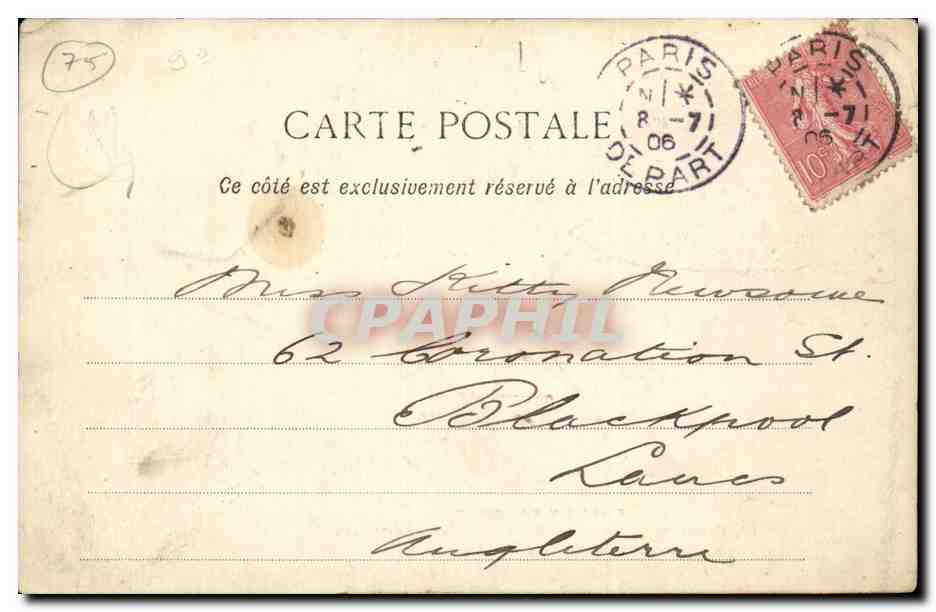 75
PARIS
8 -7
06
DEPART
PARIS
8 -7
06
10
CARTE POSTALE
Ce côté est exclusivement réservé à l'adresse
Miss Kitty Newsome
CPAPHIL
62 Coronation St.
Blackpool
Lancs
Angleterre